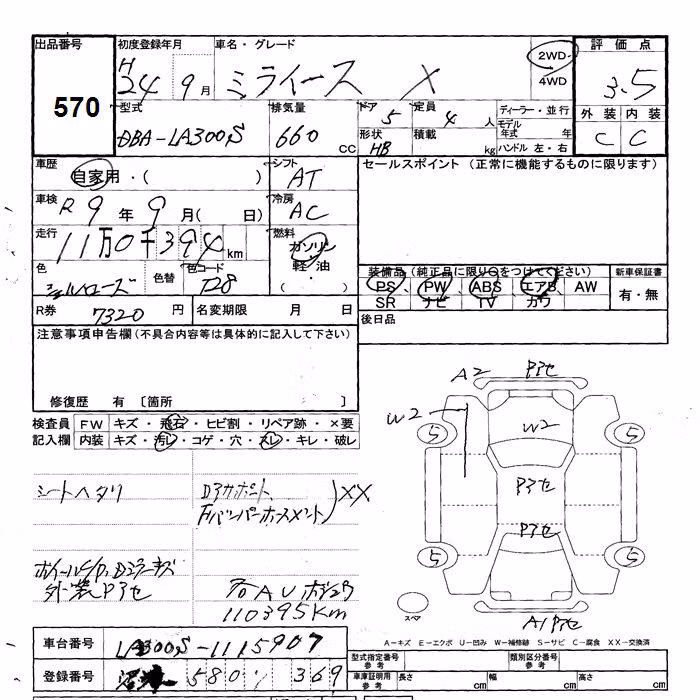 出品番号 初度登録年月 車名・グレード 2WD 評価点
570 H24 9月 ミライース X 4WD 3.5
型式 排気量 ドア 5 定員 4人 ディーラー・並行 外装 内装
DBA-LA300S 660 CC 形状 HB 積載 kg モデル年式 年 C C
ハンドル 左・右
車歴 自家用・( ) シフト AT セールスポイント(正常に機能するものに限ります)
車検 R9年9月( 日) 冷房 AC
走行 11万0千394km 燃料 ガソリン
軽油
( )
色 色替 色コード 装備品(純正品に限り○をつけてください) 新車保証書
PS PW ABS エアB AW 有・無
SR ナビ TV カワ
R券 7320円 名変期限 月 日 後日品
注意事項申告欄(不具合内容等は具体的に記入して下さい)
修復歴 有 〔箇所 〕
検査員 FW キズ・飛石・ヒビ割・リペア跡・×要
記入欄 内装 キズ・汚レ・コゲ・穴・スレ・キレ・破レ
A2 Pアセ
W2 W2
5 5
Pアセ
Pアセ
5 5
スペア A1 Pアセ
シートヘタリ Dアカホント XX
Fバンパーホスメント
外装Pアセ
110395Km
A-キズ E-エクボ U-凹み W-補修跡 S-サビ C-腐食 XX-交換済
車台番号 LA300S-1115907 型式指定番号 参考 類別区分番号 参考
登録番号 580 369 車庫証明用 参考 長さ cm 幅 cm 高さ cm